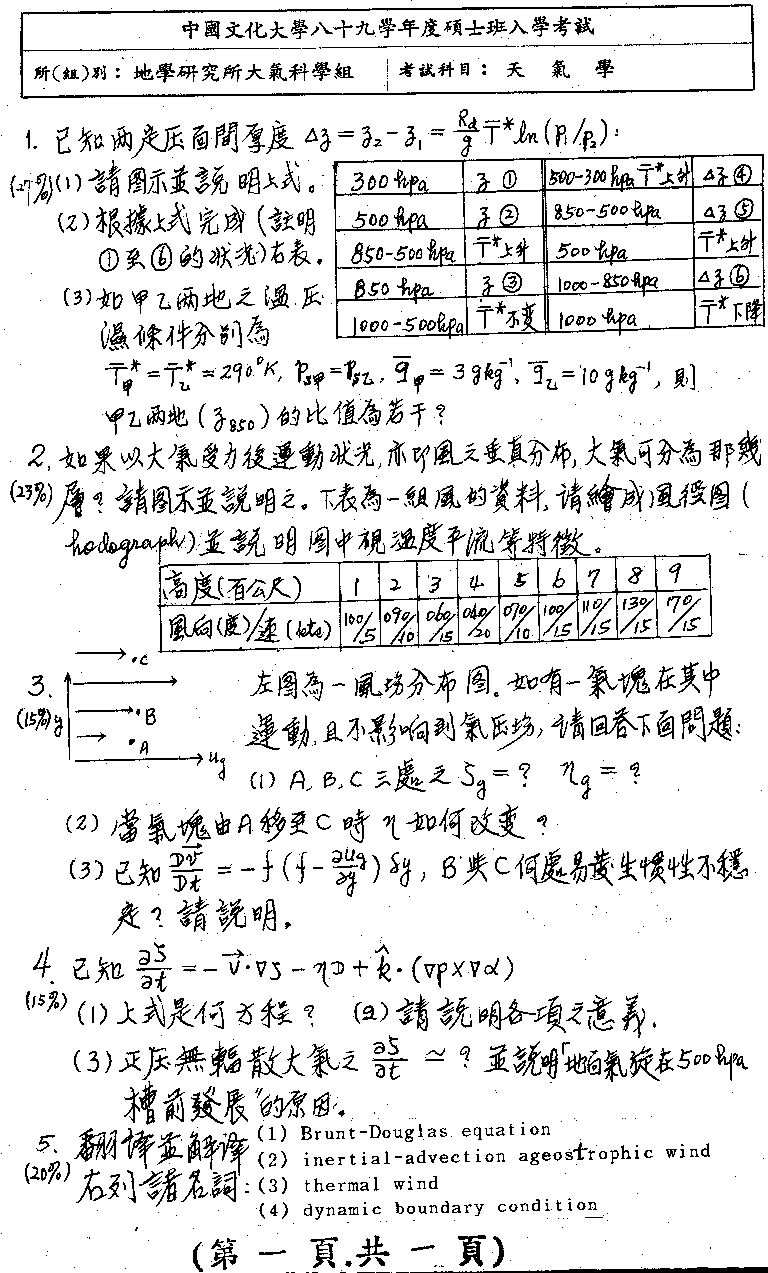 中國文化大學八十九學年度碩士班入學考試
所(組)別：地學研究所大氣科學組 考試科目：天 氣 學
1. 已知兩定压面間厚度 Δz = z₂ - z₁ = Rd/g T̅* ln(P₁/P₂)：
(27%) (1) 請圖示並說明上式。
(2) 根據上式完成(註明
①至⑥的狀況)右表。
300 hpa z ① 500-300 hpa T̅*上升 Δz ④
500 hpa z ② 850-500 hpa Δz ⑤
850-500 hpa T̅*上升 500 hpa T̅*上升
850 hpa z ③ 1000-850 hpa Δz ⑥
1000-500 hpa T̅*不变 1000 hpa T̅*下降
(3) 如甲乙兩地之溫压
濕條件分別為
T̅*甲 = T̅*乙 = 290°K, Ps甲 = Ps乙, q̅甲 = 3 gkg⁻¹, q̅乙 = 10 gkg⁻¹, 則
甲乙兩地 (z₈₅₀) 的比值為若干？
2. 如果以大氣受力後運動狀况,亦即風之垂直分布,大氣可分為那幾
(23%) 層？請圖示並說明之。下表為一組風的資料,请繪成風徑图(
hodograph)並說明图中視溫度平流等特徵。
高度(百公尺) 1 2 3 4 5 6 7 8 9
風向(度)/速(kts) 100/5 090/10 060/15 040/20 070/10 100/15 110/15 130/15 170/15
3. 左图為一風场分布图。如有一氣塊在其中
(15%) 運動,且不影响到氣压场,请回答下面問題:
y
C
B
A
ug
(1) A, B, C 三處之 ζg = ? ηg = ?
(2) 當氣塊由A移至C時 η 如何改变？
(3) 已知 Dv⃗/Dt = -f (f - ∂ug/∂y) δy, B與C何處易發生慣性不穩
定？請說明。
4. 已知 ∂ζ/∂t = -V⃗·∇ζ - ηD + k̂·(∇p×∇α)
(15%) (1) 上式是何方程？ (2) 請說明各項之意義.
(3) 正压無輻散大氣之 ∂ζ/∂t ≃ ? 並說明「地面氣旋在500hpa
槽前發展"的原因。
5. 翻譯並解譯
(20%) 右列諸名詞:
(1) Brunt-Douglas equation
(2) inertial-advection ageostrophic wind
(3) thermal wind
(4) dynamic boundary condition
(第 一 頁.共 一 頁)